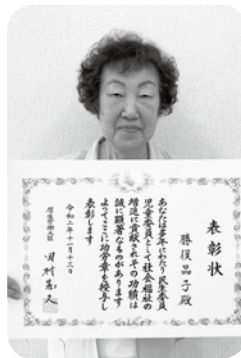 表彰状
勝俣品子殿
あなたは多年にわたり民生委員
児童委員として社会福祉の
増進に貢献されその功績は
誠に顕著なものがあります
よってここに功労章を授与し
表彰します
令和二年十一月十三日
厚生労働大臣 田村憲久